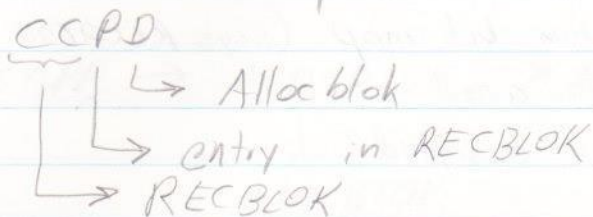 CCPD
Allocblok
entry in RECBLOK
RECBLOK